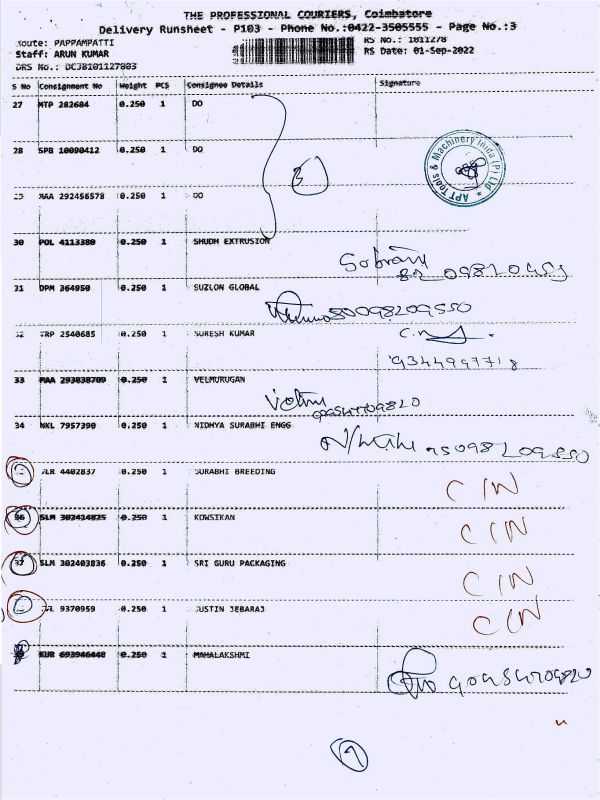 THE PROFESSIONAL COURIERS, Coimbatore
Delivery Runsheet - P103 - Phone No.:0422-3505555 - Page No.:3
Route: PAPPAMPATTI
RS No.: 1011278
Staff: ARUN KUMAR
RS Date: 01-Sep-2022
DRS No.: DCJB101127803
S No Consignment No Weight PCS Consignee Details Signature
27 MTP 282684 0.250 1 DO
28 SPB 10090412 0.250 1 DO
MAA 292456578 0.250 1 DO
APT Tools & Machinery India (P) Ltd
30 POL 4113380 0.250 1 SHUDH EXTRUSION
31 DPM 364950 0.250 1 SUZLON GLOBAL
TRP 2540685 0.250 1 SURESH KUMAR
9344997718
33 MAA 293838709 0.250 1 VELMURUGAN
34 NKL 7957390 0.250 1 NIDHYA SURABHI ENGG
4402837 0.250 1 SURABHI BREEDING
CIN
36 SLM 302414825 0.250 1 KOWSIKAN
CIN
37 SLM 302403836 0.250 1 SRI GURU PACKAGING
CIN
9370959 0.250 1 JUSTIN JEBARAJ
CIN
KUR 693946448 0.250 1 MAHALAKSHMI